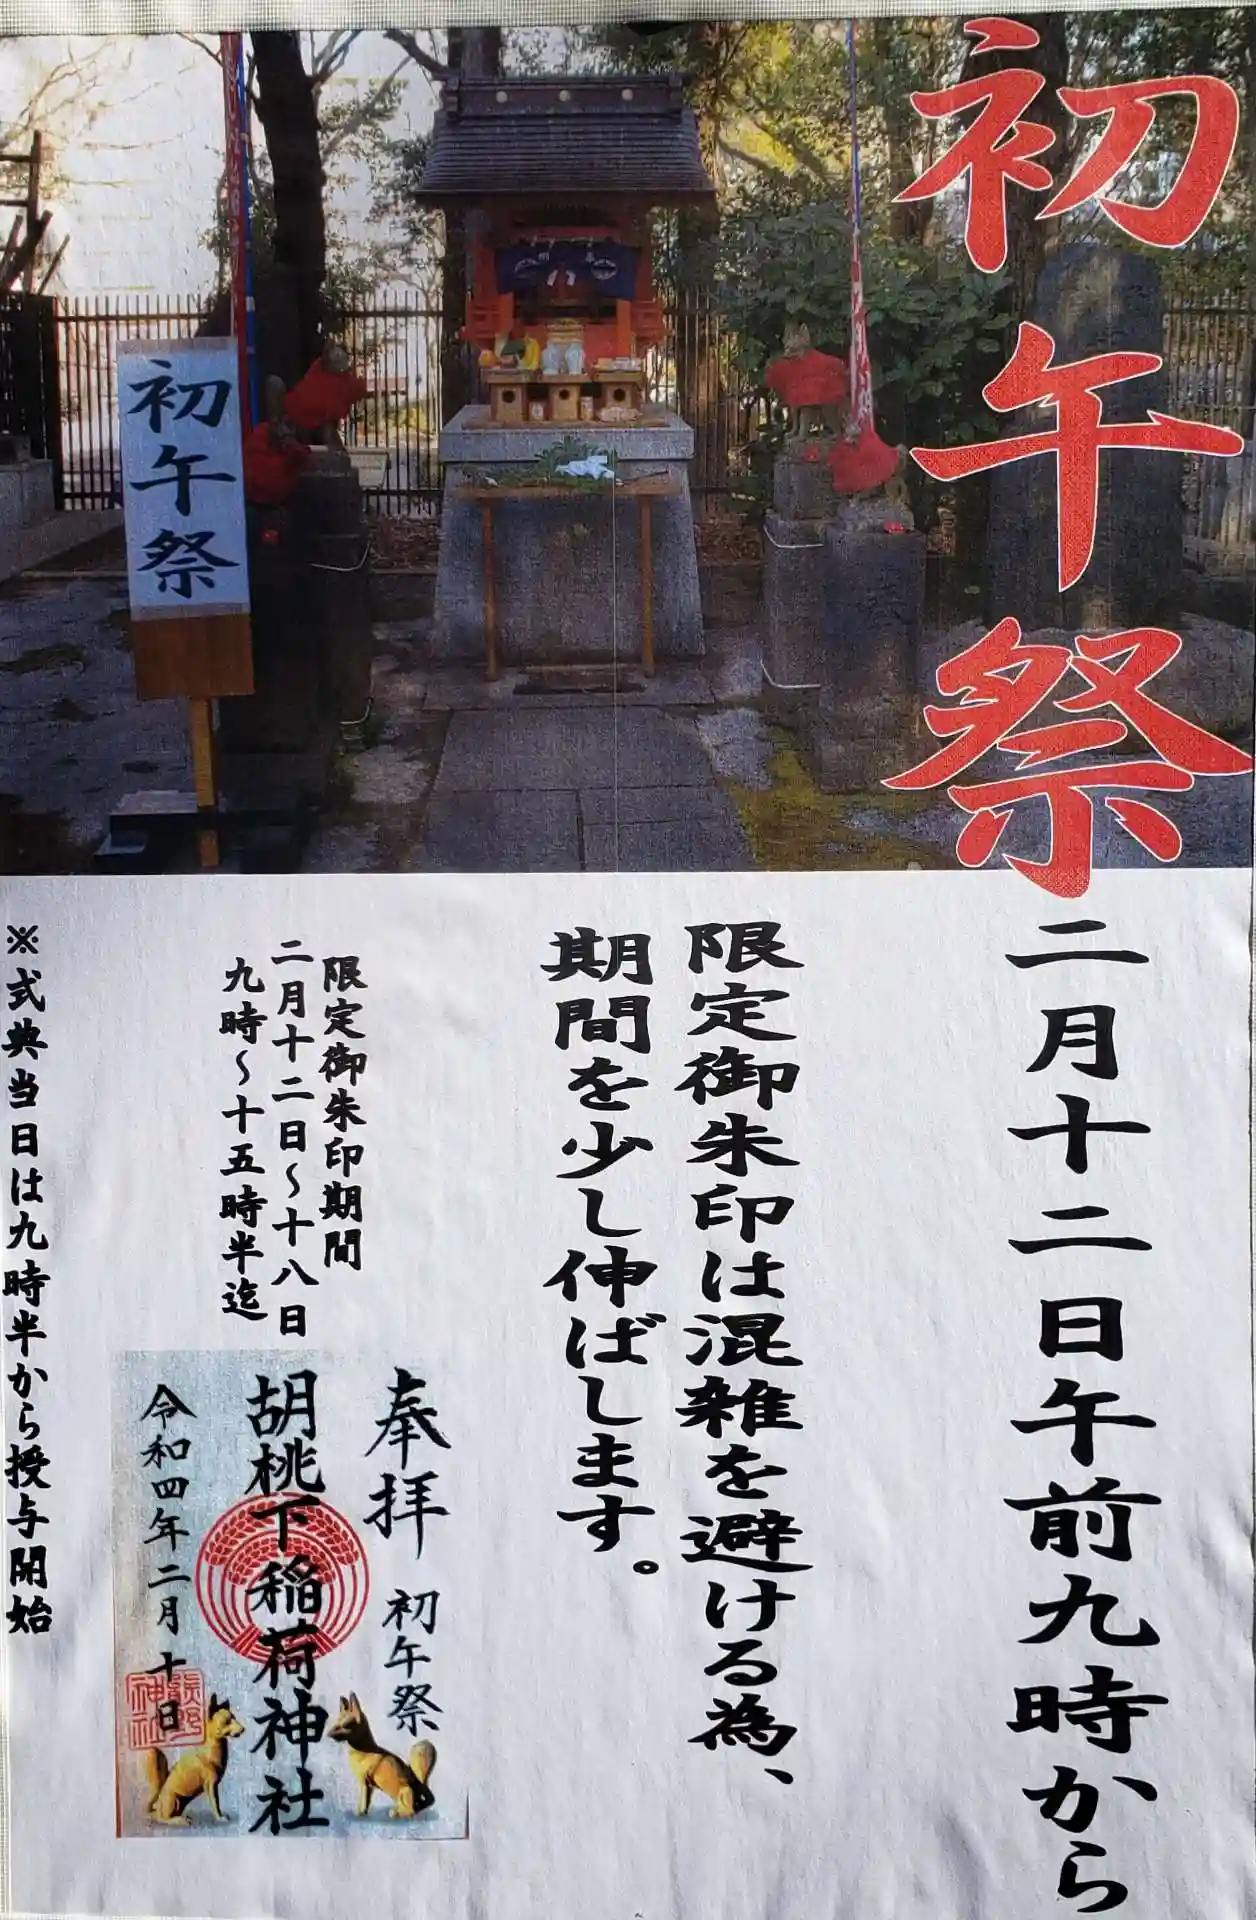 初午祭
二月十二日午前九時から
初午祭
限定御朱印は混雑を避ける為、
期間を少し伸ばします。
限定御朱印期間
二月十二日~十八日
九時~十五時半迄
奉拝 初午祭
胡桃下稲荷神社
令和四年二月十日
※式典当日は九時半から授与開始